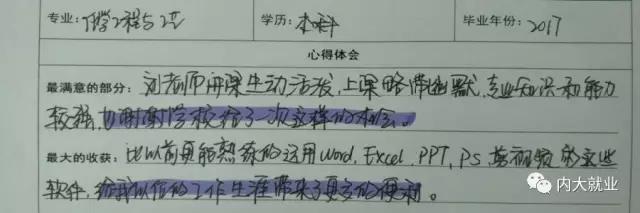 专业：化学工程与工艺 学历：本科 毕业年份：2017
心得体会
最满意的部分：刘老师讲课生动活泼，上课略带幽默，专业知识和能力
较强，也谢谢学校给了一次这样的机会。
最大的收获：比以前更能熟练的运用Word，Excel，PPT，PS，剪视频等这些
软件，给我以后的工作生涯带来了更多的便利。
内大就业